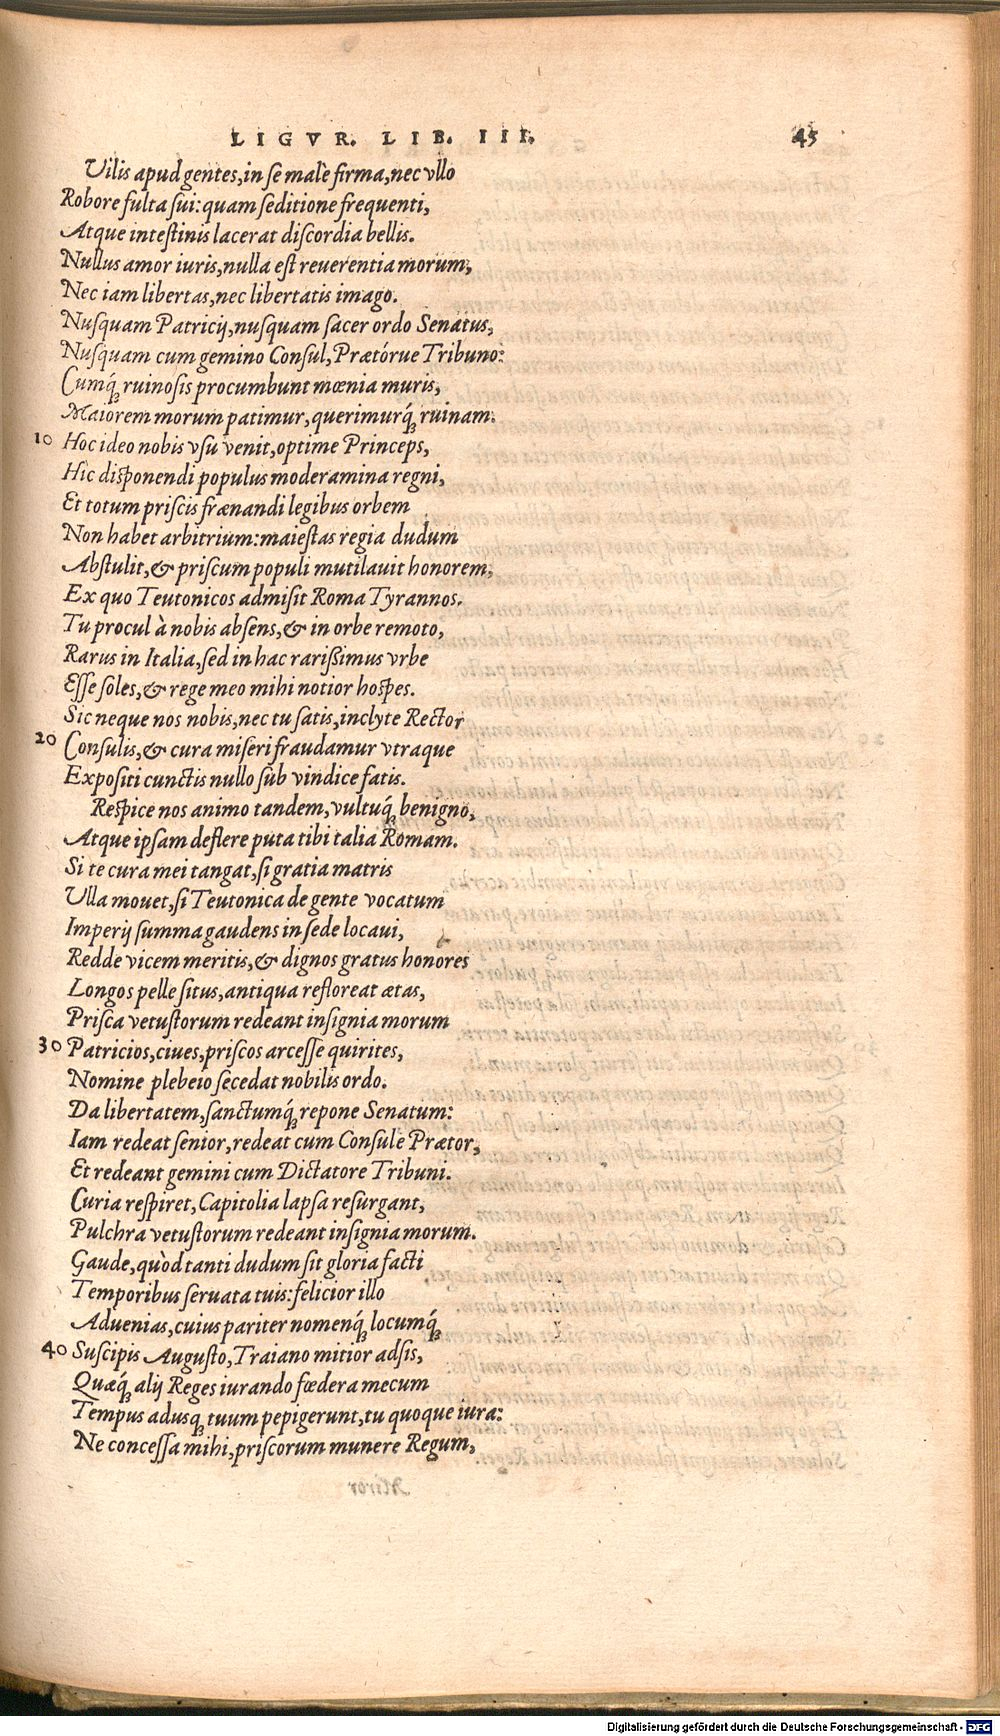 LIGVR. LIB. III. 45
Vilis apud gentes, in se malè firma, nec vllo
Robore fulta sui: quam seditione frequenti,
Atque intestinis lacerat discordia bellis.
Nullus amor iuris, nulla est reuerentia morum,
Nec iam libertas, nec libertatis imago.
Nusquam Patricij, nusquam sacer ordo Senatus,
Nusquam cum gemino Consul, Prætórue Tribuno:
Cumq́; ruinosis procumbunt mœnia muris,
Maiorem morum patimur, querimurq́; ruinam.
10 Hoc ideo nobis vsu venit, optime Princeps,
Hic disponendi populus moderamina regni,
Et totum priscis frænandi legibus orbem
Non habet arbitrium: maiestas regia dudum
Abstulit, & priscum populi mutilauit honorem,
Ex quo Teutonicos admisit Roma Tyrannos.
Tu procul à nobis absens, & in orbe remoto,
Rarus in Italia, sed in hac rarißimus vrbe
Esse soles, & rege meo mihi notior hospes.
Sic neque nos nobis, nec tu satis, inclyte Rector
20 Consulis, & cura miseri fraudamur vtraque
Expositi cunctis nullo sub vindice fatis.
Respice nos animo tandem, vultuq́; benigno,
Atque ipsam deflere puta tibi talia Romam.
Si te cura mei tangat, si gratia matris
Vlla mouet, si Teutonica de gente vocatum
Imperij summa gaudens in sede locaui,
Redde vicem meritis, & dignos gratus honores
Longos pelle situs, antiqua refloreat ætas,
Prisca vetustorum redeant insignia morum
30 Patricios, ciues, priscos arcesse quirites,
Nomine plebeio secedat nobilis ordo.
Da libertatem, sanctumq́; repone Senatum:
Iam redeat senior, redeat cum Consule Prætor,
Et redeant gemini cum Dictatore Tribuni.
Curia respiret, Capitolia lapsa resurgant,
Pulchra vetustorum redeant insignia morum.
Gaude, quòd tanti dudum sit gloria facti
Temporibus seruata tuis: felicior illo
Aduenias, cuius pariter nomenq́; locumq́;
40 Suscipis Augusto, Traiano mitior adsis,
Quæq́; alij Reges iurando fœdera mecum
Tempus adusq; tuum pepigerunt, tu quoque iura:
Ne concessa mihi, priscorum munere Regum,
Digitalisierung gefördert durch die Deutsche Forschungsgemeinschaft - DFG